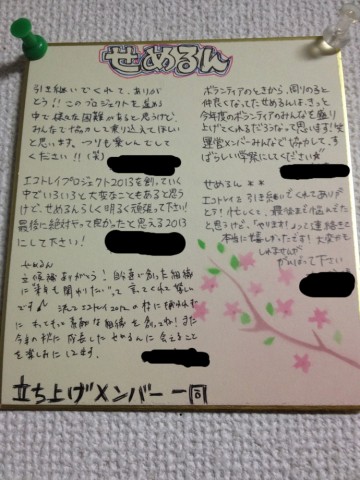 せめるん
引き継いでくれて、ありが
とう!!このプロジェクトを進める
中で様々な困難があると思うけど、
みんなで協力して乗り込えてほしい
と思います。つりも楽しんでして
ください!!(笑)
エコトレイプロジェクト2013を創っていく
中でいろいろと大変なこともあると思う
けど、せめるんらしく明るく頑張って下さい!
最後に絶対やって良かったと思える2013
にして下さい!
せめるん
立候補ありがとう!自分達で創った組織
に"幸を聞かせたい"って言ってくれて嬉しい
です♪ 決してエコトレイ2012の枠に捕われず
に わくわくする素敵な組織を創ってね!また
今年の秋に成長したせめるんに会えること
を楽しみにしてます。
ボランティアのときから、周りの子と
仲良くなってたせめるんは、きっと
今年度のボランティアのみんなを盛り
上げてくれるだろうなって思います!!
運営メンバーみんなで協力して、す
ばらしい学祭にしてください☆
せめるん**
エコトレイを引き継いでくれてありが
とう!忙しくて、最後まで悩んでた
と思うけど、「やります!」って連絡きて
本当に嬉しかったです!大変かも
しれませんが
がんばって下さい
立ち上げメンバー一同